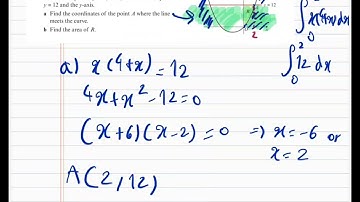 y = 12 and the y-axis.
a Find the coordinates of the point A where the line
meets the curve.
b Find the area of R.
12
2
∫₀² x(4+x) dx
∫₀² 12 dx
a) x(4+x) = 12
4x + x² - 12 = 0
(x+6)(x-2) = 0 ⇒ x = -6 or
x = 2
A(2, 12)